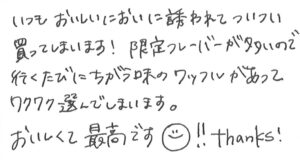 いつもおいしいにおいに誘われてついつい
買ってしまいます! 限定フレーバーが多いので
行くたびにちがう味のワッフルがあって
ワクワク選んでしまいます。
おいしくて最高です☺!! thanks!